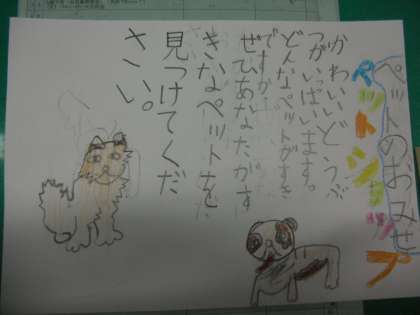 ペットのおみせ
ペットショップ
かわいいどうぶ
つがいっぱいます。
どんなペットがすき
ですか
ぜひあなたがす
きなペットを
見つけてくだ
さい。